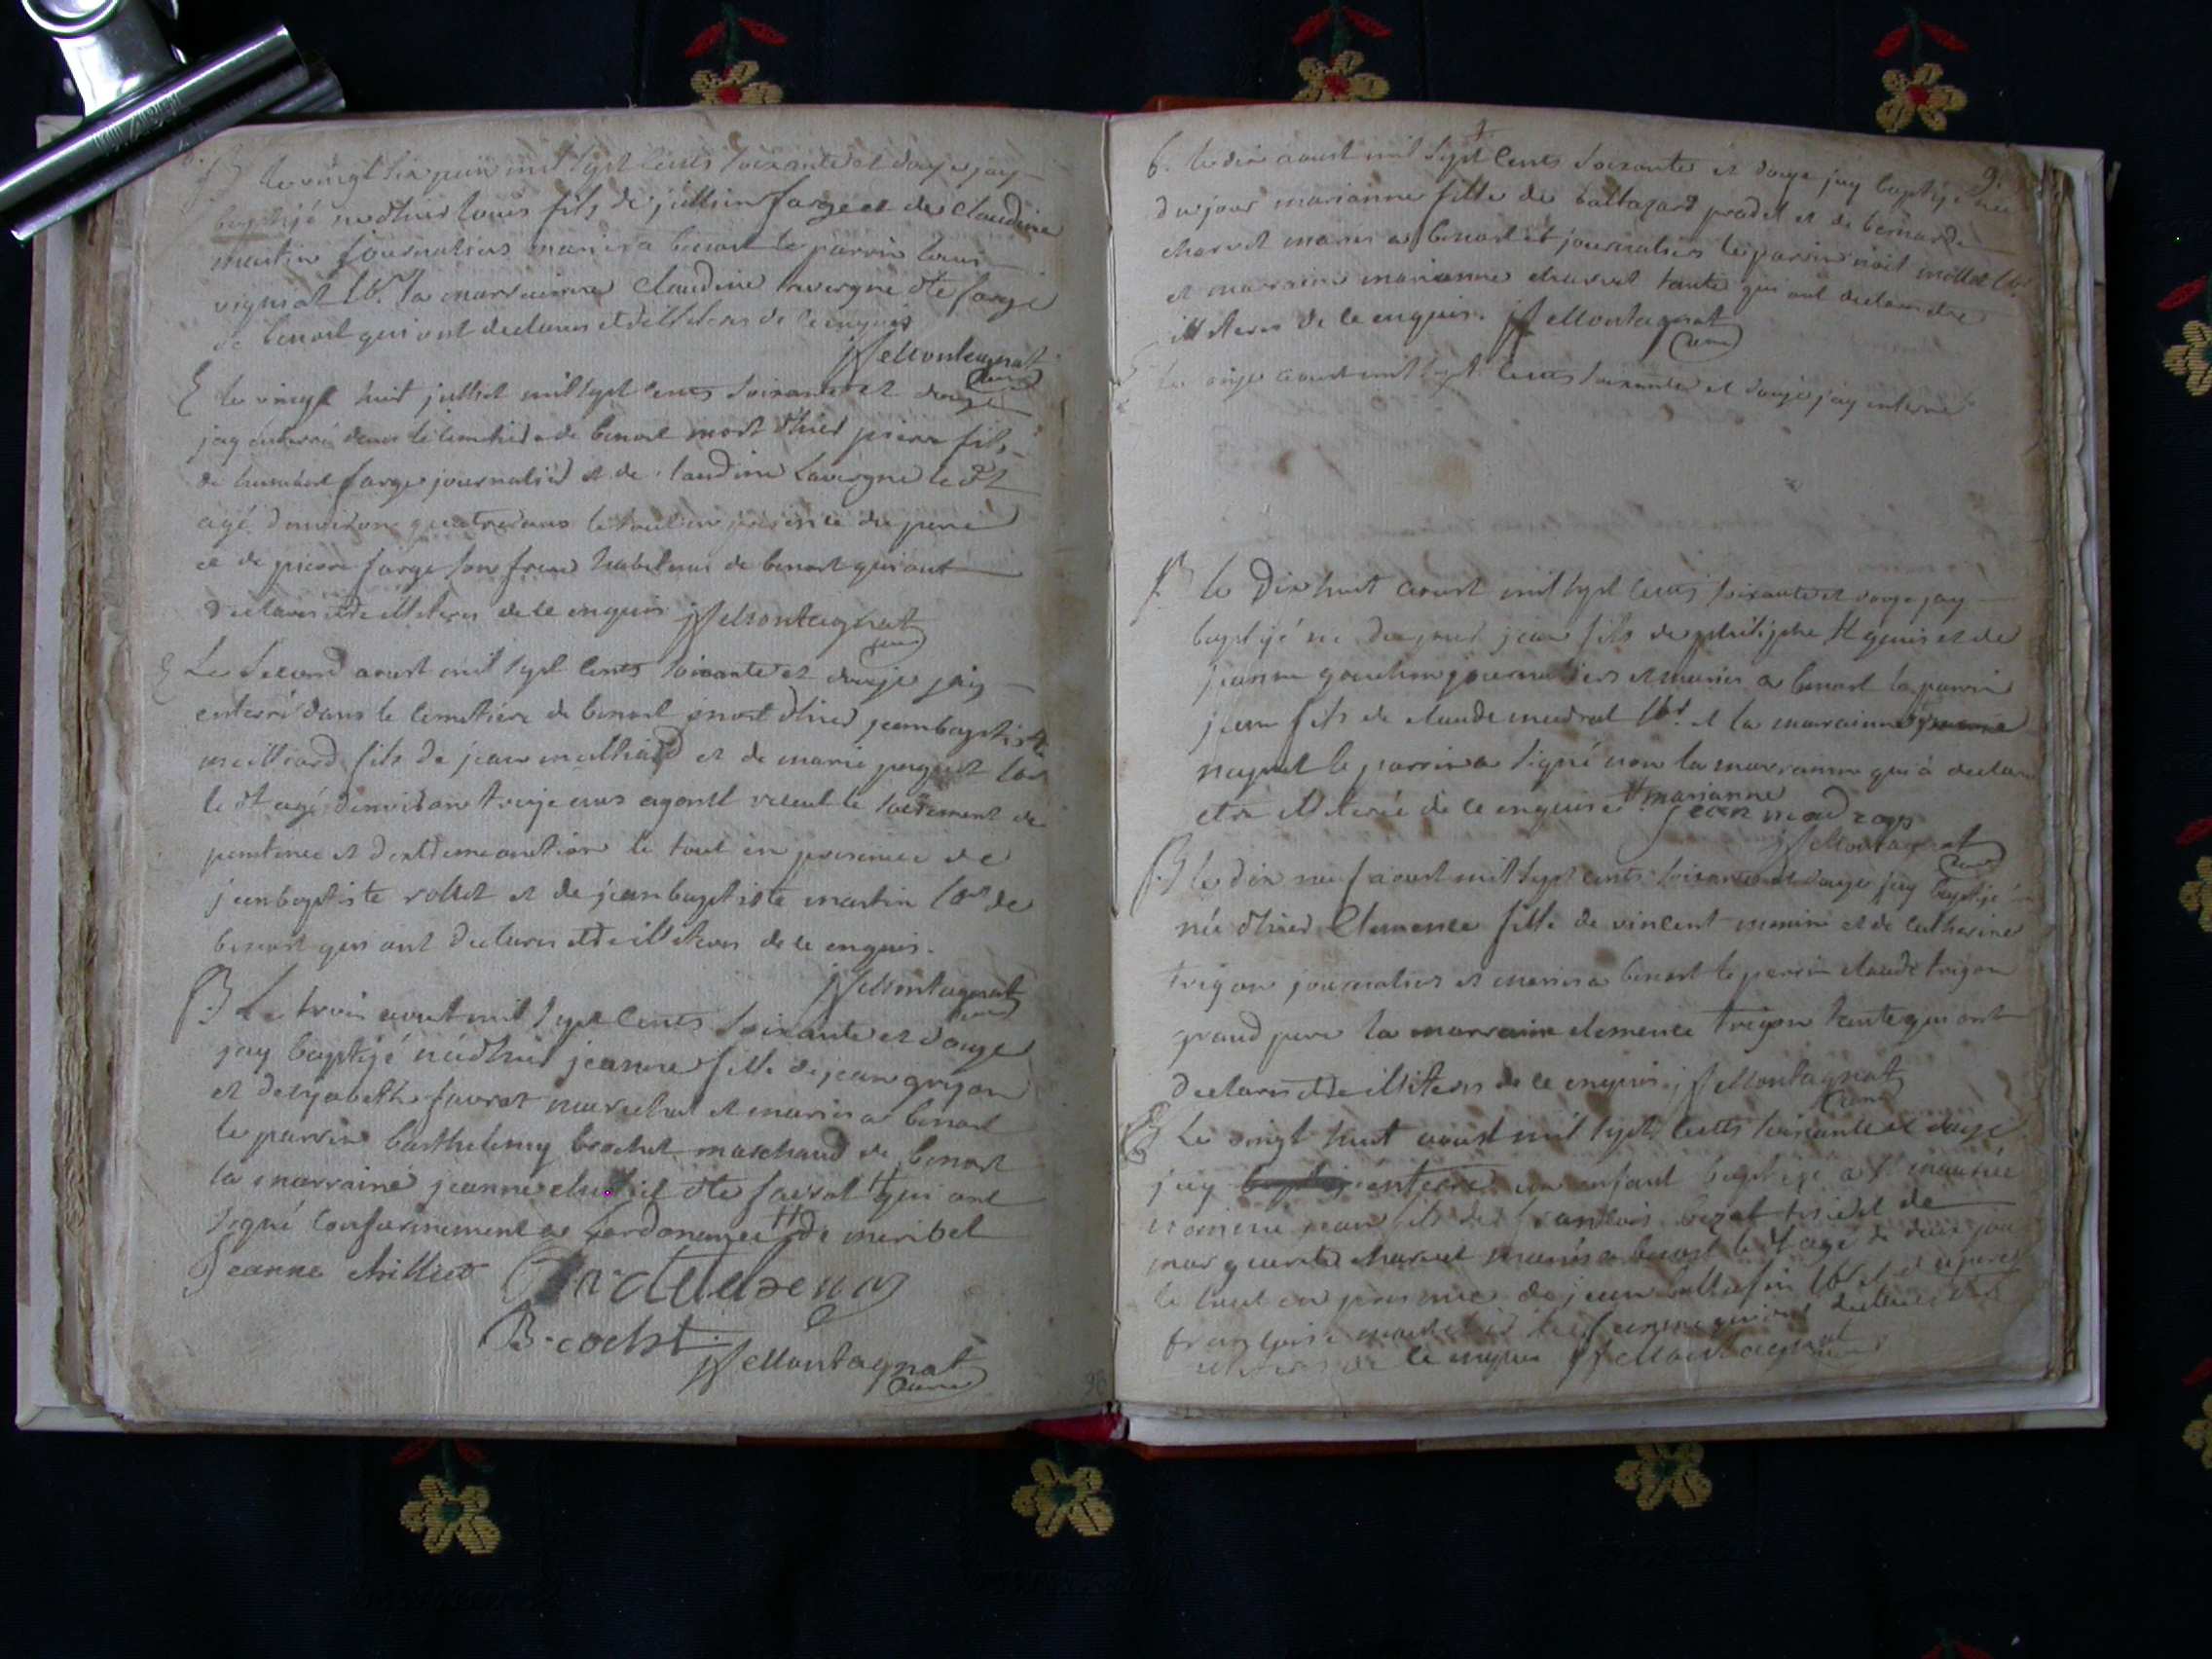 B le vingt six juin mil sept cents soixante et douze jay
baptisé né d'hier louis fils de jullien farge et de claudine
martin journaliers mariés a benost le parrin louis
vigniat lbr. la marrainne claudine lavergne dte farge
de benost qui ont declarés etre illiteres de ce enquis
jf Montagnat
curé
E le vingt huit juillet mil sept cents soixante et douze
jay enterré dans le cimetiere de benost mort d'hier pierre fils
de humbert farge journalier et de claudine Lavergne le dt
agé d'environ quatre ans le tout en presence du pere
et de pierre farge son frere habitans de benost qui ont
declarés etre illiteres de ce enquis jf Montagnat
curé
E Le second aoust mil sept cents soixante et douze jay
enterré dans le cimetiere de benost mort d'hier jean baptiste
milliard fils de jean milliard et de marie puguet lbr
le dt agé d'environ treize ans ayant receut le sacrement de
penitence et d'extreme onction le tout en presence de
jean baptiste rollet et de jean baptiste martin lbr de
benost qui ont declarés etre illiteres de ce enquis.
jf Montagnat
curé
B Le trois aoust mil sept cents soixante et douze
jay baptisé née d'hier jeanne fille de jean grigon
et d'elyzabeth favrot marechal et mariés a benost
le parrin barthelemy brochet marchand de benost
la marraine jeanne chillet dte favrot # qui ont
signé conformement a Lordonnance # de miribel
Jeanne chilliet
B. cocht
jf Montagnat
curé
96
9.
b. le dix aoust mil sept cents soixante et douze jay baptisé née
du jour marianne fille de baltazard pradel et de bernarde
charvet mariés a benost et journaliers le parrin noel mollet lbr
et marraine marianne charvet tante qui ont declaré etre
illiteres de ce enquis. jf Montagnat
curé
le onze aoust mil sept cents soixante et douze jay enterré
B le Dix huit aoust mil sept cents soixante et douze jay
baptisé né du jour jean fils de philippe et de
jeanne journaliers et mariés a benost le parrin
jean fils de claude lbr. et la marrainne
le parrin a signé non la marrainne qui a declaré
etre illiterée de ce enquise # marianne
jf Montagnat
curé
B le dix neuf aoust mil sept cents soixante et douze jay baptisé
née d'hier Clemence fille de vincent et de catherine
trigon journaliers et mariés a benost le parrin claude trigon
grand pere la marraine clemence trigon tante qui ont
declarés etre illiteres de ce enquis jf Montagnat
curé
E Le vingt huit aoust mil sept cents soixante et douze
jay enterré un enfant baptisé a st maurice
jean fils de francois et de
marguerite charvet mariés a benost le dt agé de
le tout en presence de jean lbr et
francoise sa femme qui ont declarés etre
illiteres de ce enquis jf Montagnat
curé